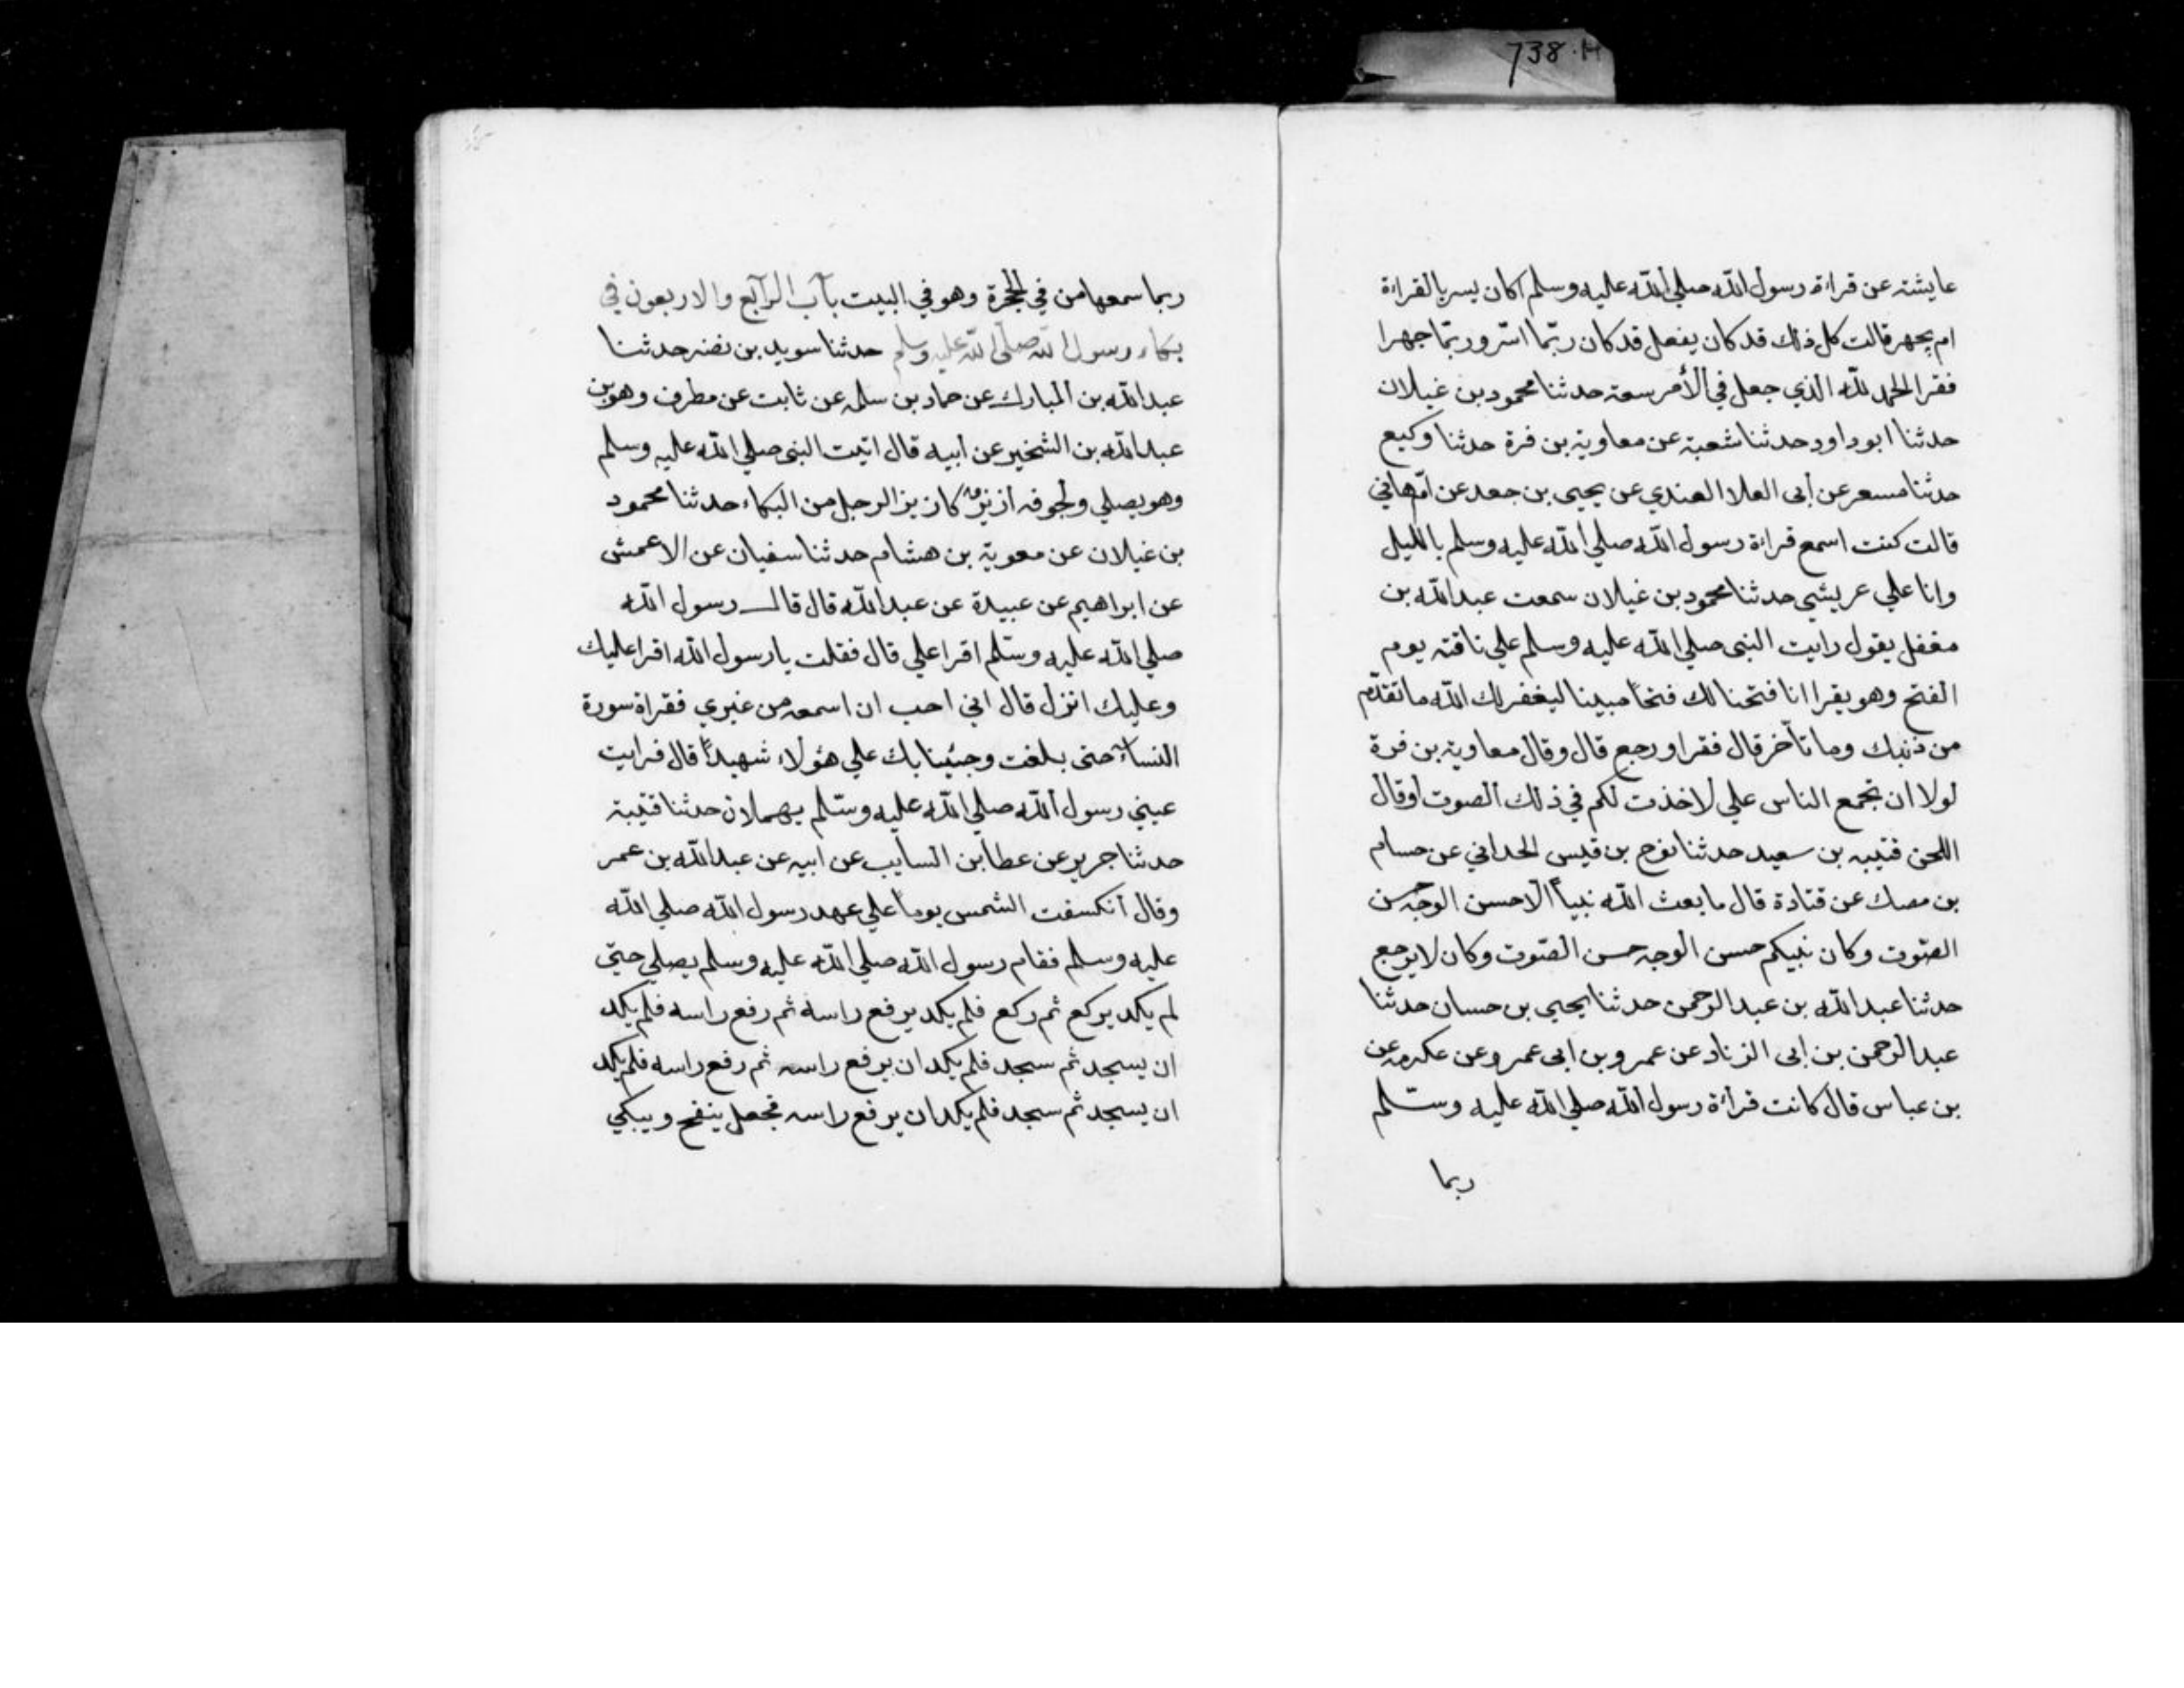 738.H
عايشة عن قراءة رسول الله صلي الله عليه وسلم اكان يسر بالقراءة
ام يجهر قالت كل ذلك قد كان يفعل قد كان ربّما اسّر وربّما جهرا
فقرا الحمد لله الذي جعل في الأمر سعة حدثنا محمود بن غيلان
حدثنا ابو داود حدثنا شعبة عن معاوية بن قرة حدثنا وكيع
حدثنا مسعر عن أبى العلا العندي عن يحيى بن جعد عن امّ هاني
قالت كنت اسمع قراءة رسول الله صلي الله عليه وسلم بالليل
وانا علي عريشي حدثنا محمود بن غيلان سمعت عبد الله بن
مغفل يقول رايت النبى صلي الله عليه وسلم علي ناقته يوم
الفتح وهو يقرا انا فتحنا لك فتحاً مبينا ليغفر لك الله ما تقدّم
من ذنبك وما تأخر قال فقرا ورجع قال وقال معاوية بن قرة
لولا ان يجمع الناس علي لاخذت لكم في ذلك الصوت اوقال
اللحن قتيبه بن سعيد حدثنا نوح بن قيس الحداني عن حسام
بن مصك عن قتادة قال ما بعث الله نبياً الّا حسن الوجه حسن
الصّوت وكان نبيكم حسن الوجه حسن الصّوت وكان لا يرجع
حدثنا عبد الله بن عبد الرحمن حدثنا يحيي بن حسان حدثنا
عبد الرحمن بن ابى الزناد عن عمرو بن ابى عمرو عن عكرمه عن
بن عباس قال كانت قراءة رسول الله صلي الله عليه وسلّم
ربما
ربما سمعها من في الحجرة وهو في البيت باب الرابع والاربعون في
بكاء رسول الله صلى الله عليه وسلم حدثنا سويد بن نضر حدثنا
عبد الله بن المبارك عن حماد بن سلمه عن ثابت عن مطرف وهو بن
عبد الله بن الشخير عن أبيه قال اتيت النبى صلي الله عليه وسلم
وهو يصلي ولجوفه ازيز كازيز الرجل من البكاء حدثنا محمود
بن غيلان عن معوية بن هشام حدثنا سفيان عن الاعمش
عن ابراهيم عن عبيدة عن عبد الله قال قال رسول الله
صلي الله عليه وسّلم اقرا علي قال فقلت يا رسول الله اقرا عليك
وعليك انزل قال اني احب ان اسمعه من غيري فقراة سورة
النساء حتى بلغت وجئينا بك علي هؤلاء شهيداً قال فرايت
عيني رسول الله صلي الله عليه وسّلم يهملان حدثنا قتيبة
حدثنا جرير عن عطا بن السايب عن ابيه عن عبد الله بن عمر
وقال انكسفت الشمس يوما علي عهد رسول الله صلي الله
عليه وسلم فقام رسول الله صلي الله عليه وسلم يصلي حتي
لم يكد يركع ثم ركع فلم يكد يرفع راسه ثم رفع راسه فلم يكد
ان يسجد ثم سجد فلم يكد ان يرفع راسه ثم رفع راسه فلم يكد
ان يسجد ثم سجد فلم يكد ان يرفع راسه فجعل ينفخ ويبكي